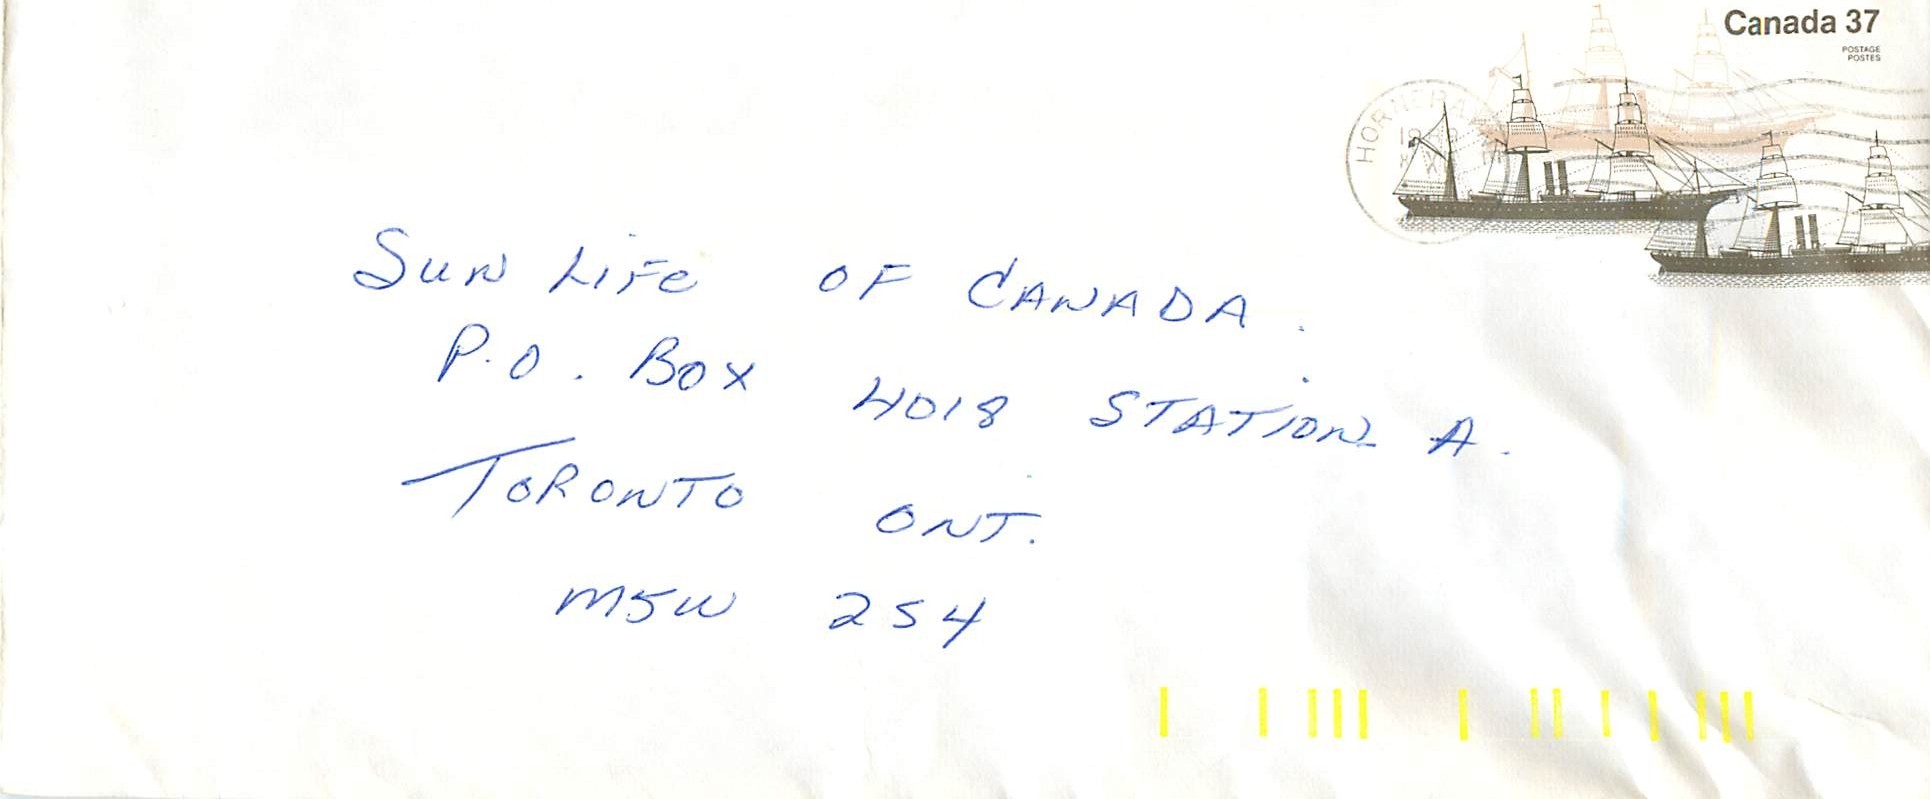 Canada 37
POSTAGE
POSTES
SUN LIFE OF CANADA.
P.O. BOX 4018 STATION A.
TORONTO ONT.
M5W 2S4